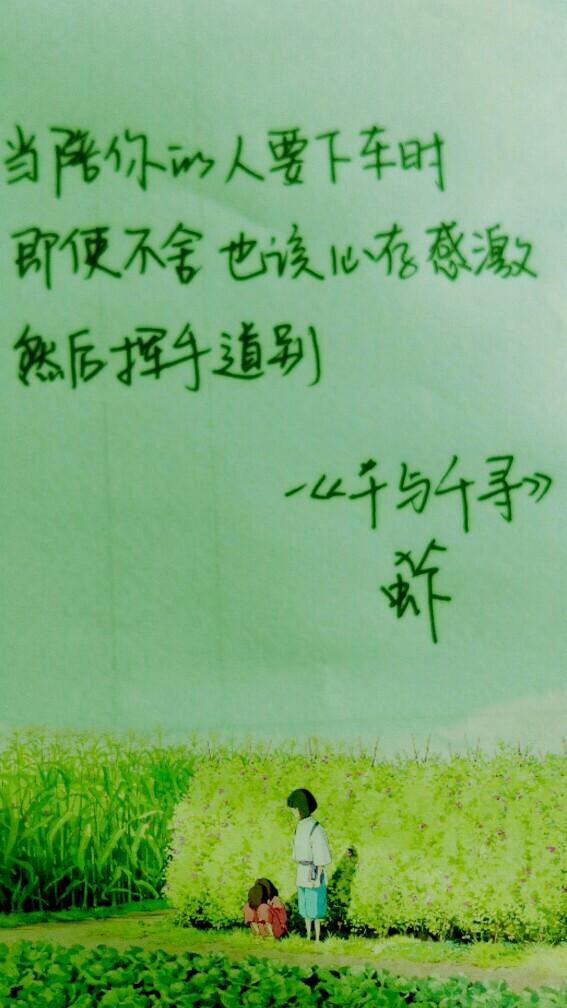 当陪你的人要下车时
即便不舍 也该心存感激
然后挥手道别
—《千与千寻》